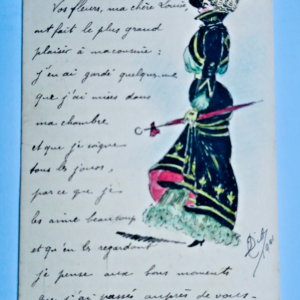 Vos fleurs, ma chère Louise,
ont fait le plus grand
plaisir à ma cousine :
j'en ai gardé quelques-unes
que j'ai mises dans
ma chambre
et que je soigne
tous les jours,
parce que je
les aime beaucoup
et qu'en les regardant
je pense aux bons moments
que j'ai passés auprès de vous -